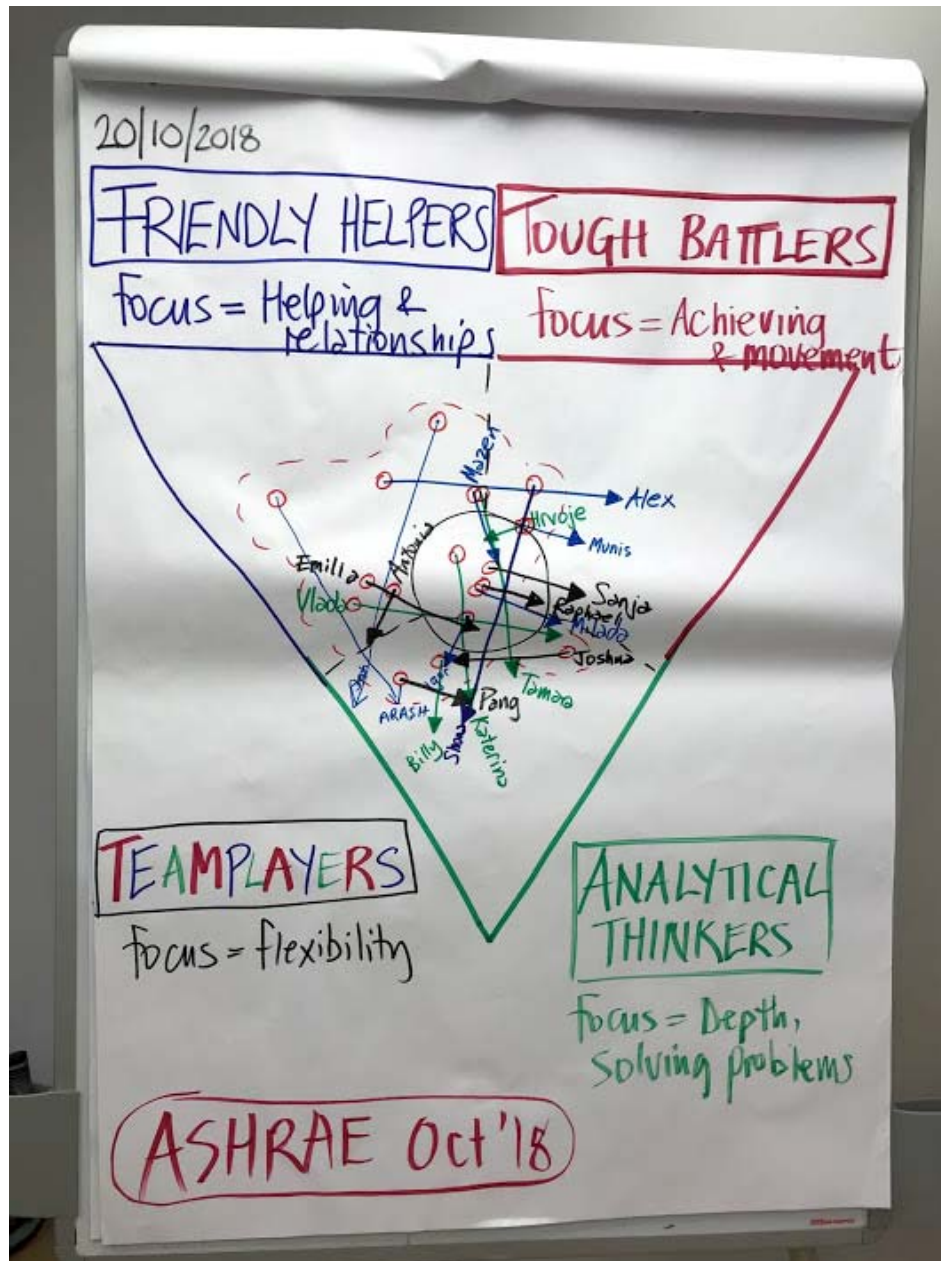 20/10/2018
FRIENDLY HELPERS
TOUGH BATTLERS
focus = Helping &
relationships
focus = Achieving
& movement
Mazen
Alex
Hrvoje
Munis
Antonia
Emilia
Vlada
Sanja
Raphael
Milada
Joshua
Tamara
Pang
ARASH
Billy
Katerina
TEAMPLAYERS
focus = flexibility
ANALYTICAL
THINKERS
focus = Depth,
solving problems
ASHRAE Oct '18